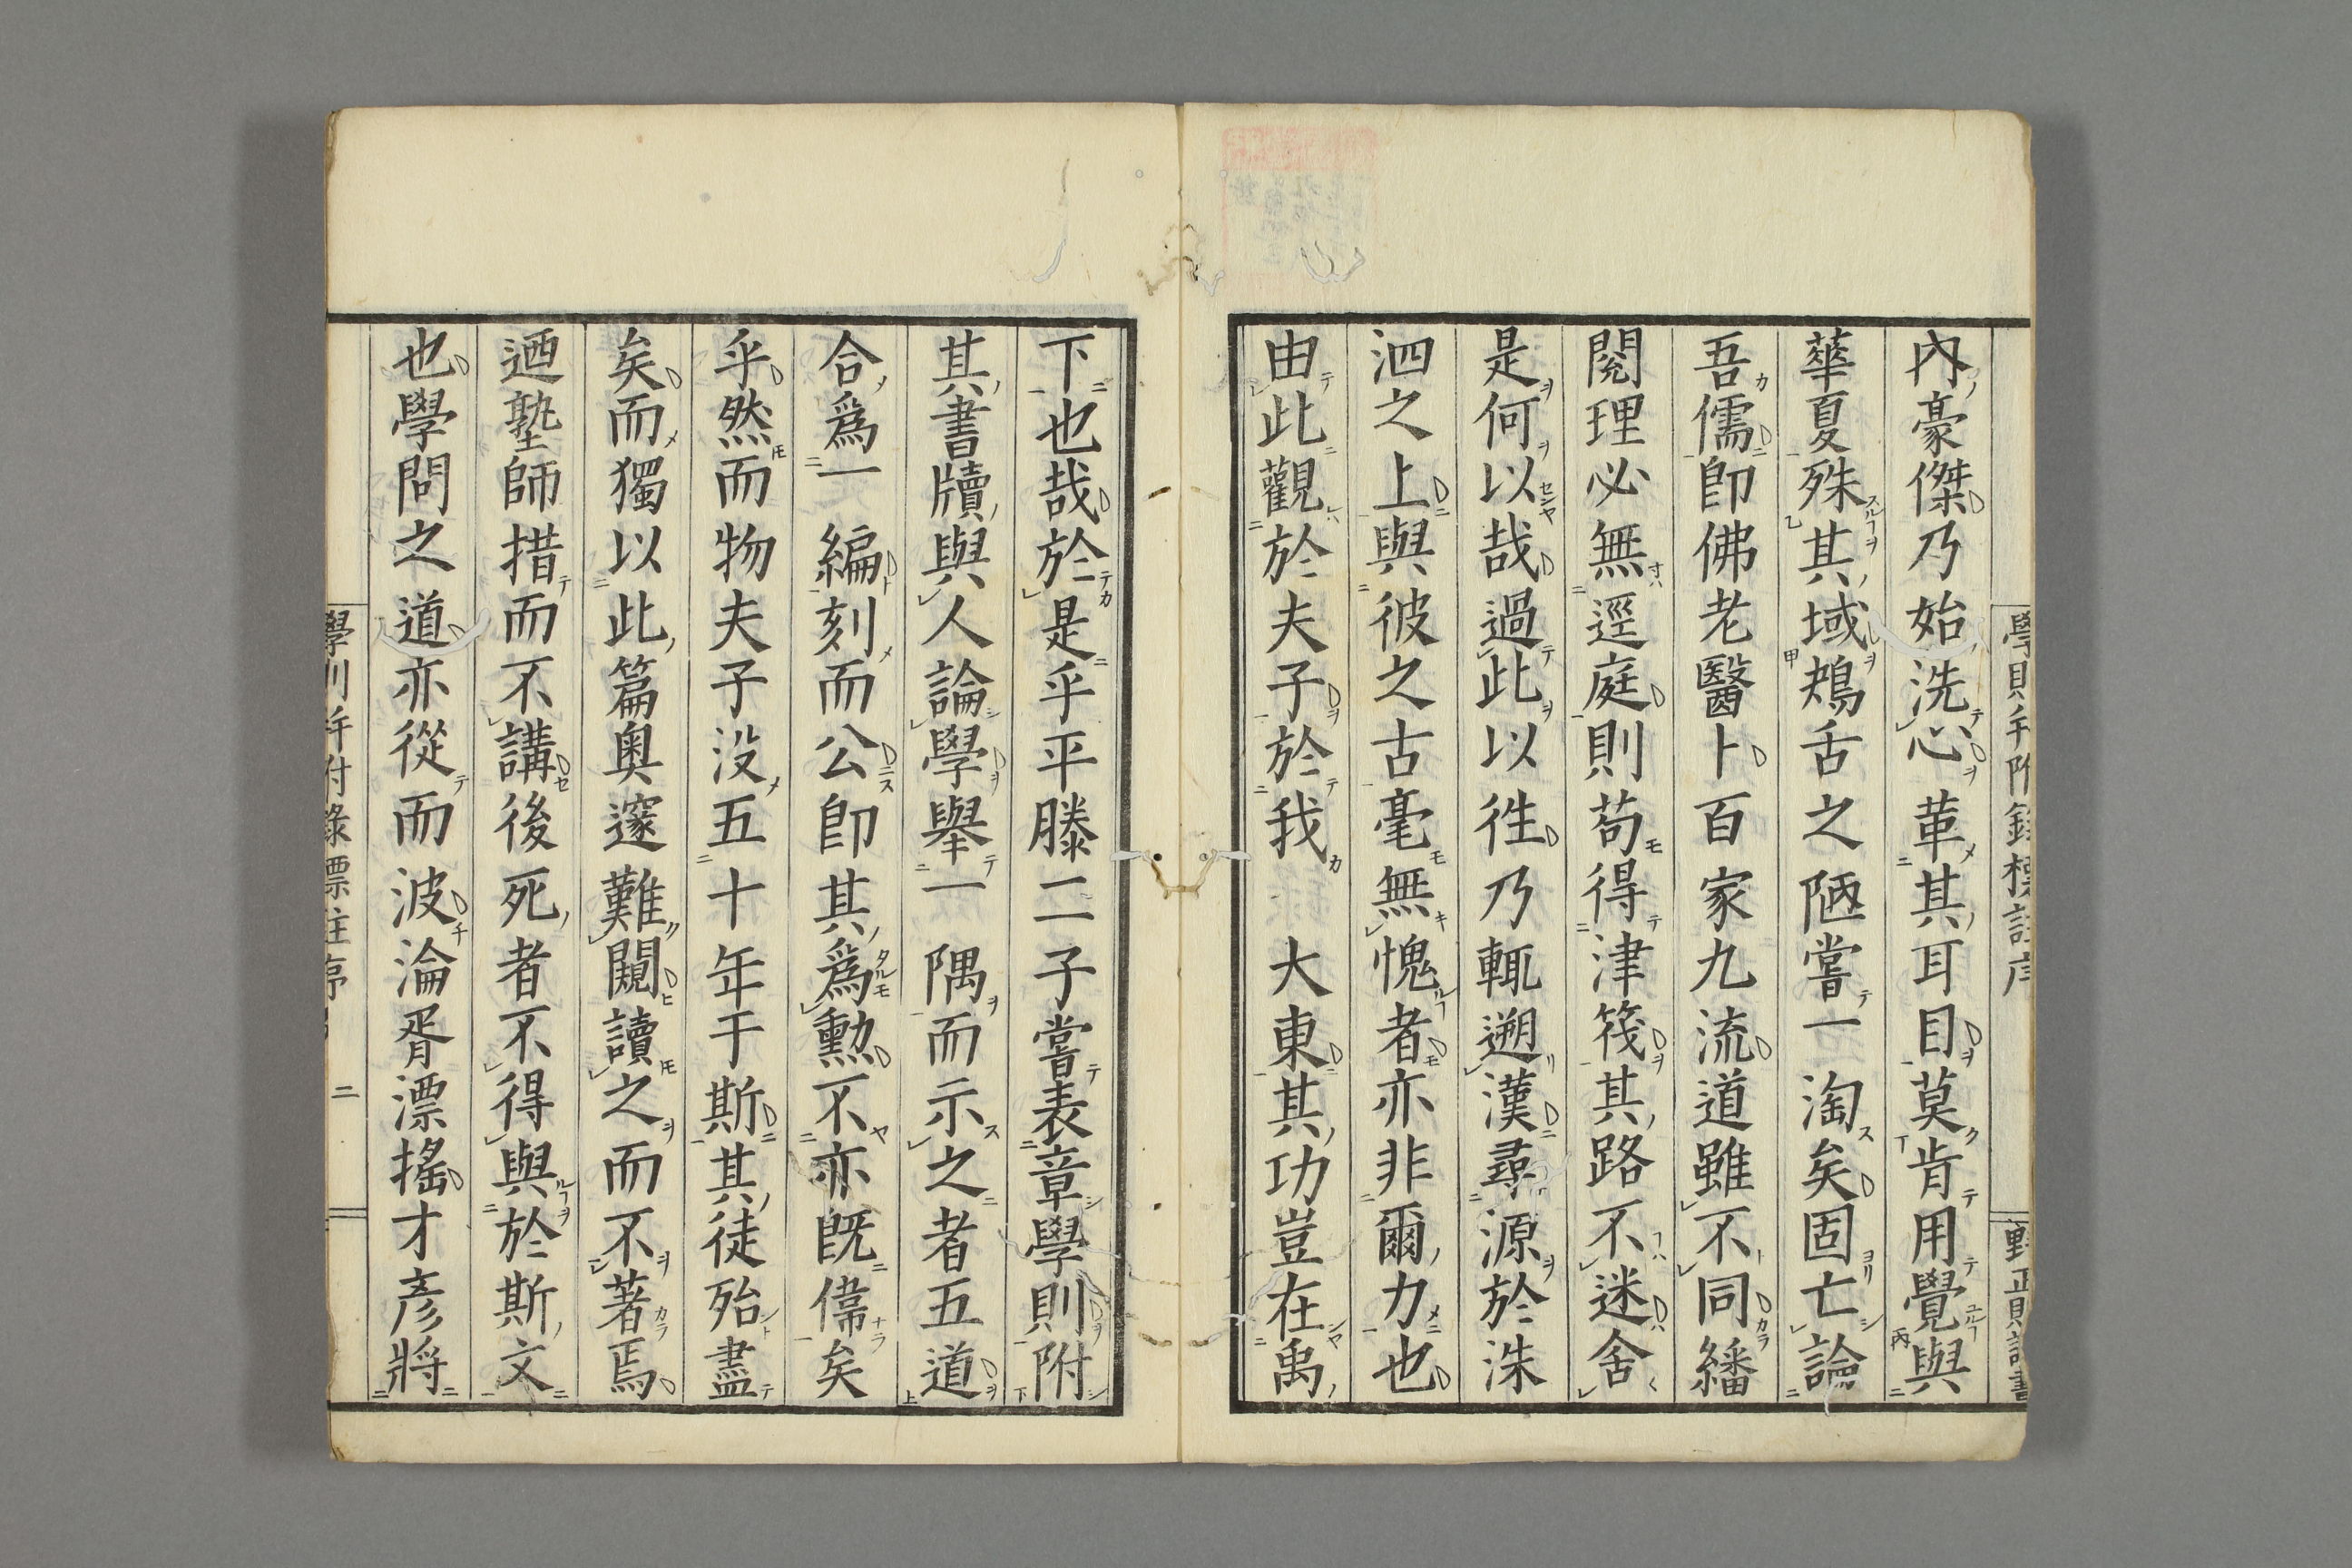 內豪傑乃始洗心革其耳目莫肯用覺與
華夏殊其域鴂舌之陋嘗一淘矣固亡論
吾儒卽佛老醫卜百家九流道雖不同繙
閱理必無逕庭則苟得津筏其路不迷舍
是何以哉過此以徃乃輒遡漢尋源於洙
泗之上與彼之古毫無愧者亦非爾力也
由此觀於夫子於我 大東其功豈在禹
下也哉於是乎平滕二子嘗表章學則附
其書牘與人論學舉一隅而示之者五道
合爲一編刻而公卽其爲勲不亦旣偉矣
乎然而物夫子没五十年于斯其徒殆盡
矣而獨以此篇奥邃難闚讀之而不著焉
迺塾師措而不講後死者不得與於斯文
也學問之道亦從而波淪胥漂搖才彥將
二